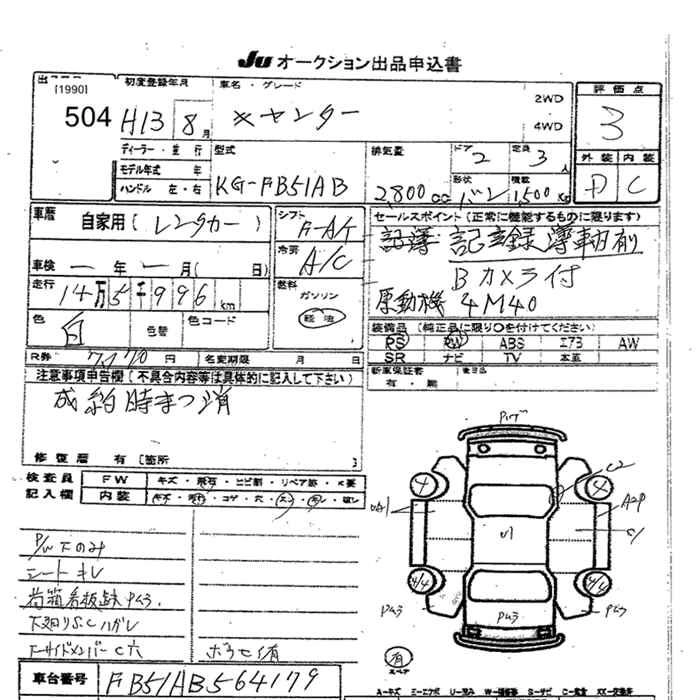 Ju オークション出品申込書
[1990]
504
初度登録年月
H13 8月
車名・グレード
キャンター
2WD
4WD
評価点
3
ディーラー・並行
モデル年式 年
ハンドル 左・右
型式
KG-FB51AB
排気量
2,800cc
ドア
2
定員
3人
形状
バン
積載
1,500kg
外装 内装
D C
車歴
自家用(レンタカー)
シフト
F-A/T
車検 ー年ー月(日)
冷房
A/C
セールスポイント(正常に機能するものに限ります)
記簿 記録簿
Bカメラ付
原動機 4M40
走行
14万5千996km
燃料
ガソリン
軽油
色
白
色替
色コード
装備品(純正品に限り○を付けてください)
PS PW ABS エアB AW
SR ナビ TV 本革
R券 円
名変期限 月 日
新車保証書
有・無
注意事項申告欄(不具合内容等は具体的に記入して下さい)
成約時まつ消
修復歴 有〔箇所
検査員
記入欄
FW キズ・飛石・ヒビ割・リペア跡・X要
内装
P/W下のみ
シートキレ
荷箱看板跡 PM3.
下廻りS.Cハガレ
F-サイドメンバーC穴
車台番号
FB51AB564179
C2
4
4
A2P
U1
C1
4/4
4/4
PM3
PM3
PM3
有
スペア
A-キズ E-エクボ U-凹み W-補修跡 S-サビ C-腐食 XX-交換済